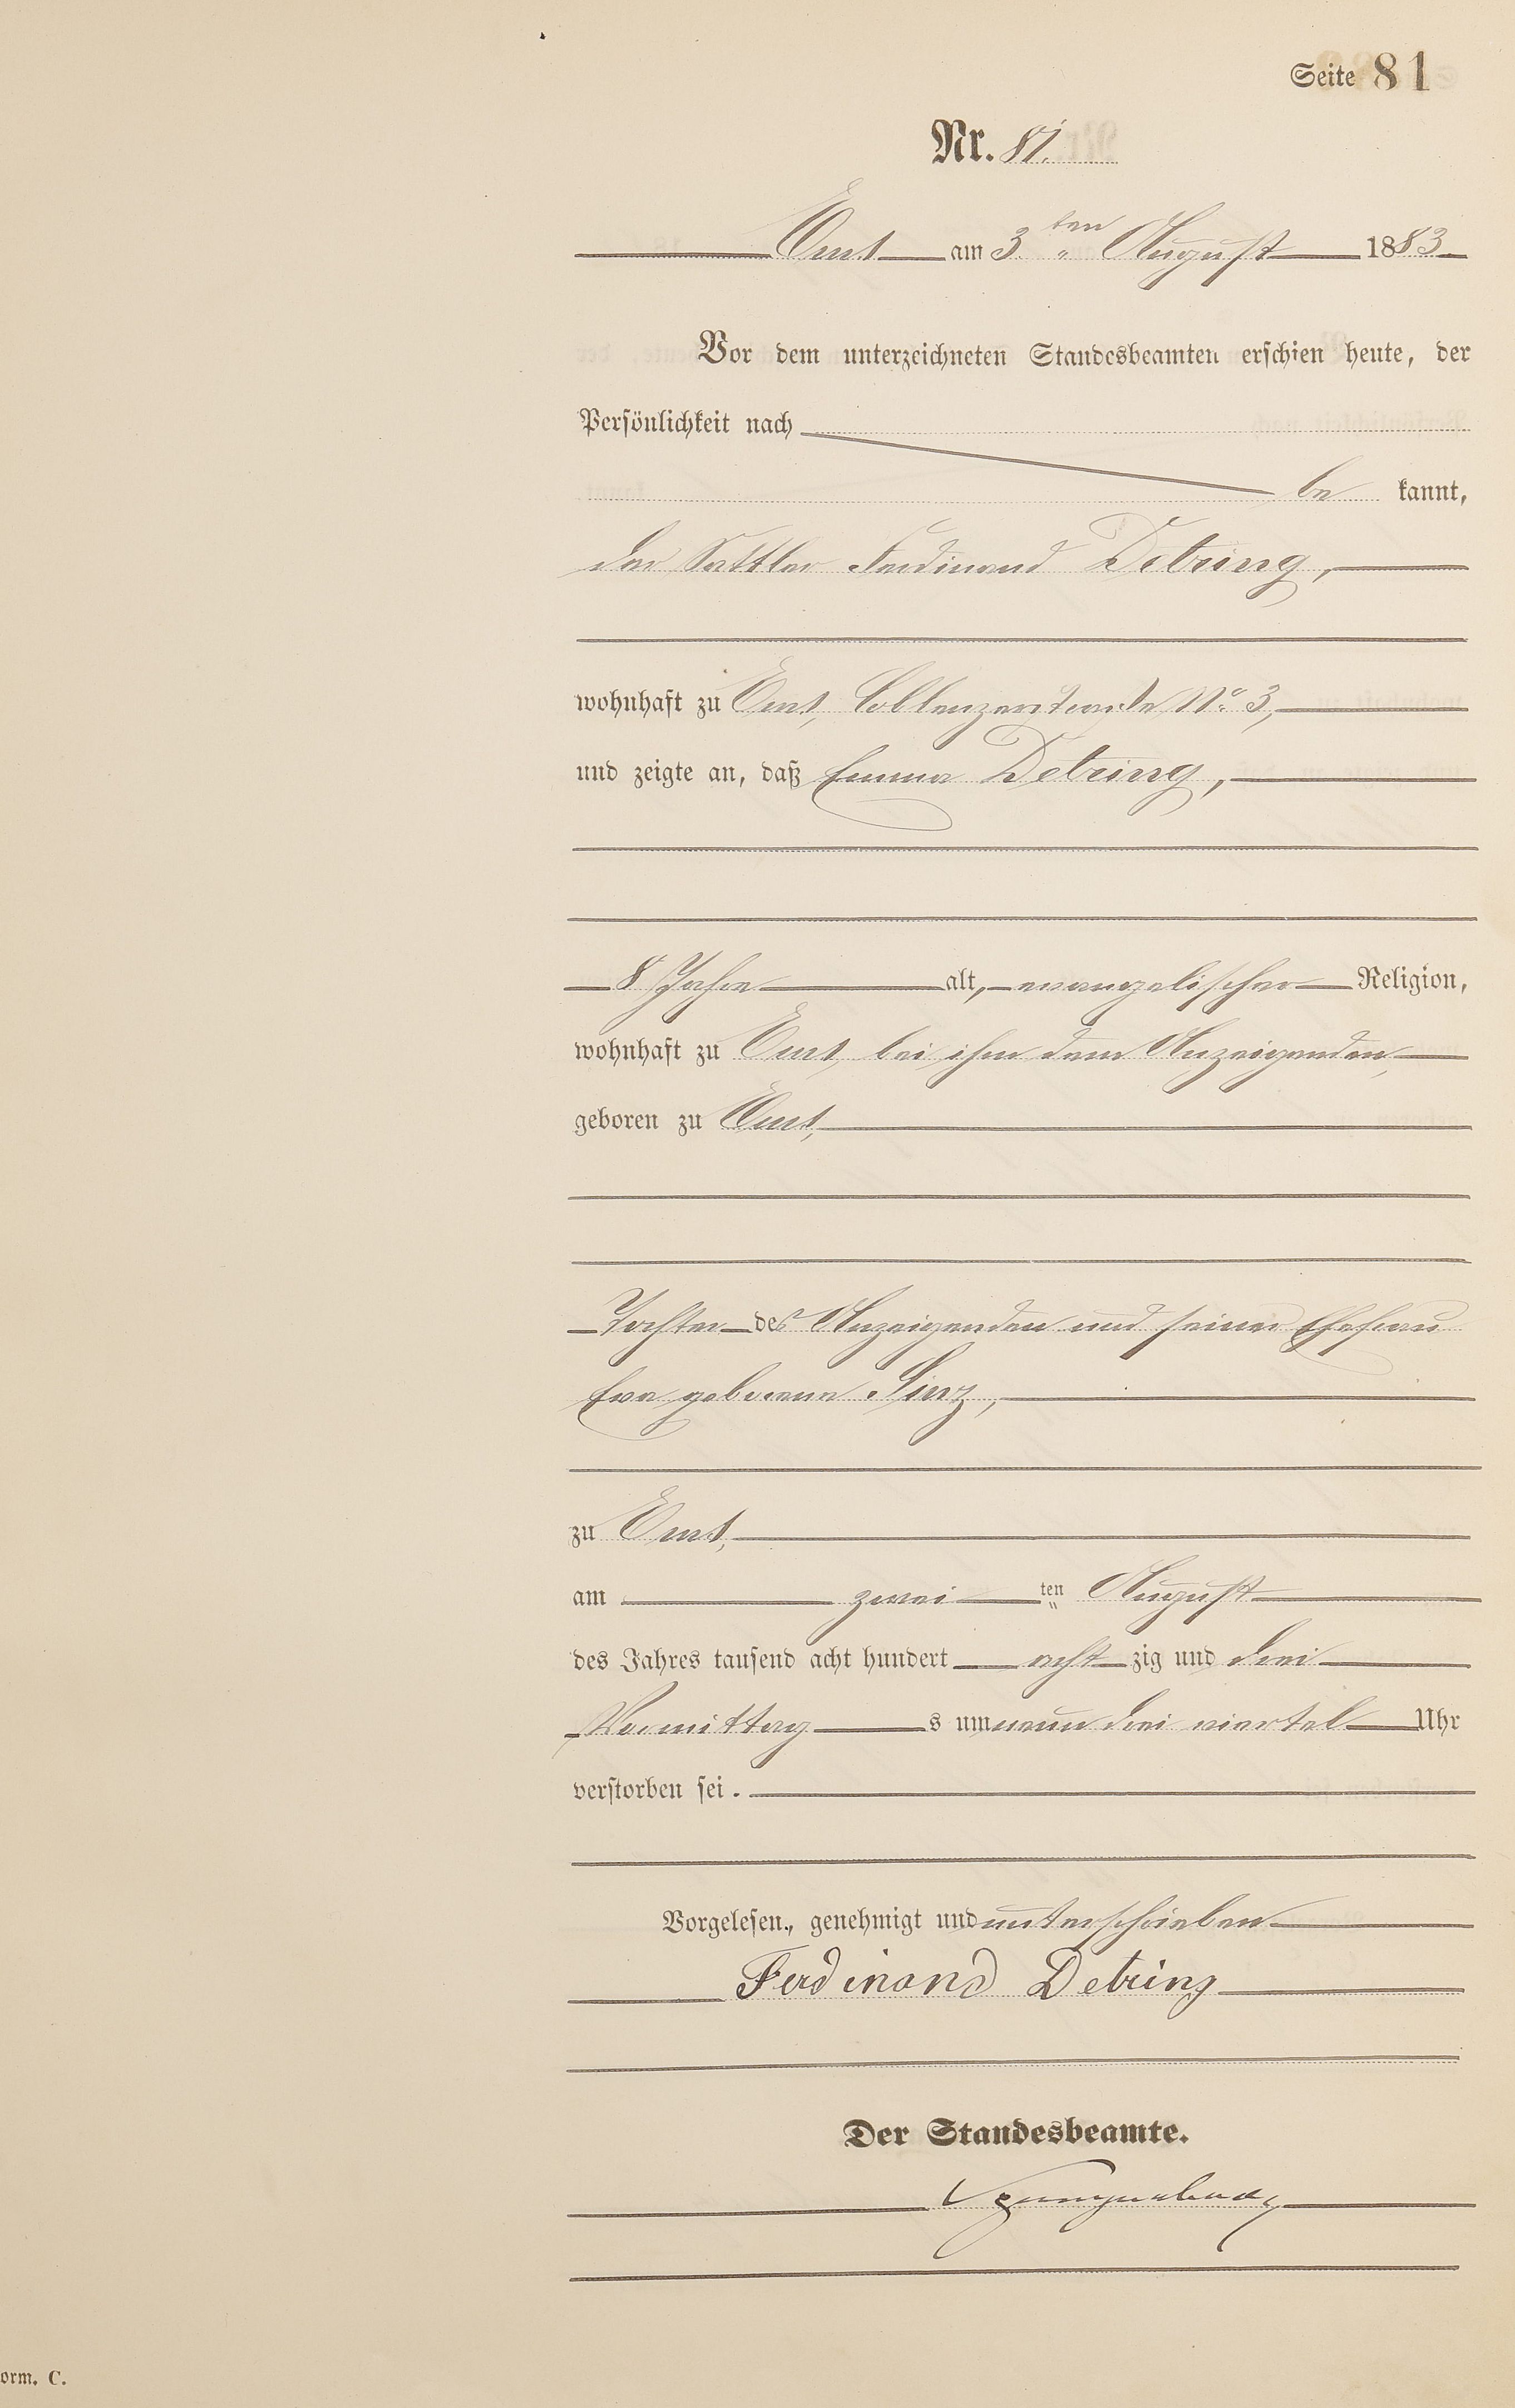 Seite 81
Nr. 81.
Ems am 3ten August 1883.
Vor dem unterzeichneten Standesbeamten erschien heute, der
Persönlichkeit nach
be kannt,
der Sattler Ferdinand Debring,
wohnhaft zu Ems, Coblenzerstraße No 3,
und zeigte an, daß Emma Debring,
8 Jahre alt, evangelischer Religion,
wohnhaft zu Ems, bei ihm dem Anzeigenden,
geboren zu Ems,
Tochter des Anzeigenden und seiner Ehefrau
Eva geborene
zu Ems,
am zwei ten August
des Jahres tausend acht hundert acht zig und drei
Vormittag s um neun drei viertel Uhr
verstorben sei.
Vorgelesen, genehmigt und unterschrieben
Ferdinand Debring
Der Standesbeamte.
orm. C.